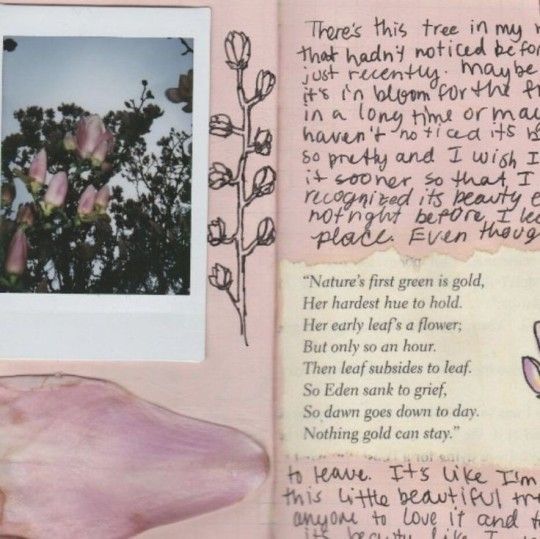 There's this tree in my
that hadn't noticed before
just recently. Maybe
it's in bloom for the
in a long time or
haven't noticed its
so pretty and I wish I
it sooner so that I
recognized its beauty
not right before, I
place. Even though
"Nature's first green is gold,
Her hardest hue to hold.
Her early leaf's a flower;
But only so an hour.
Then leaf subsides to leaf.
So Eden sank to grief,
So dawn goes down to day.
Nothing gold can stay."
to leave. It's like I'm
this little beautiful
anyone to love it and
its beauty like I